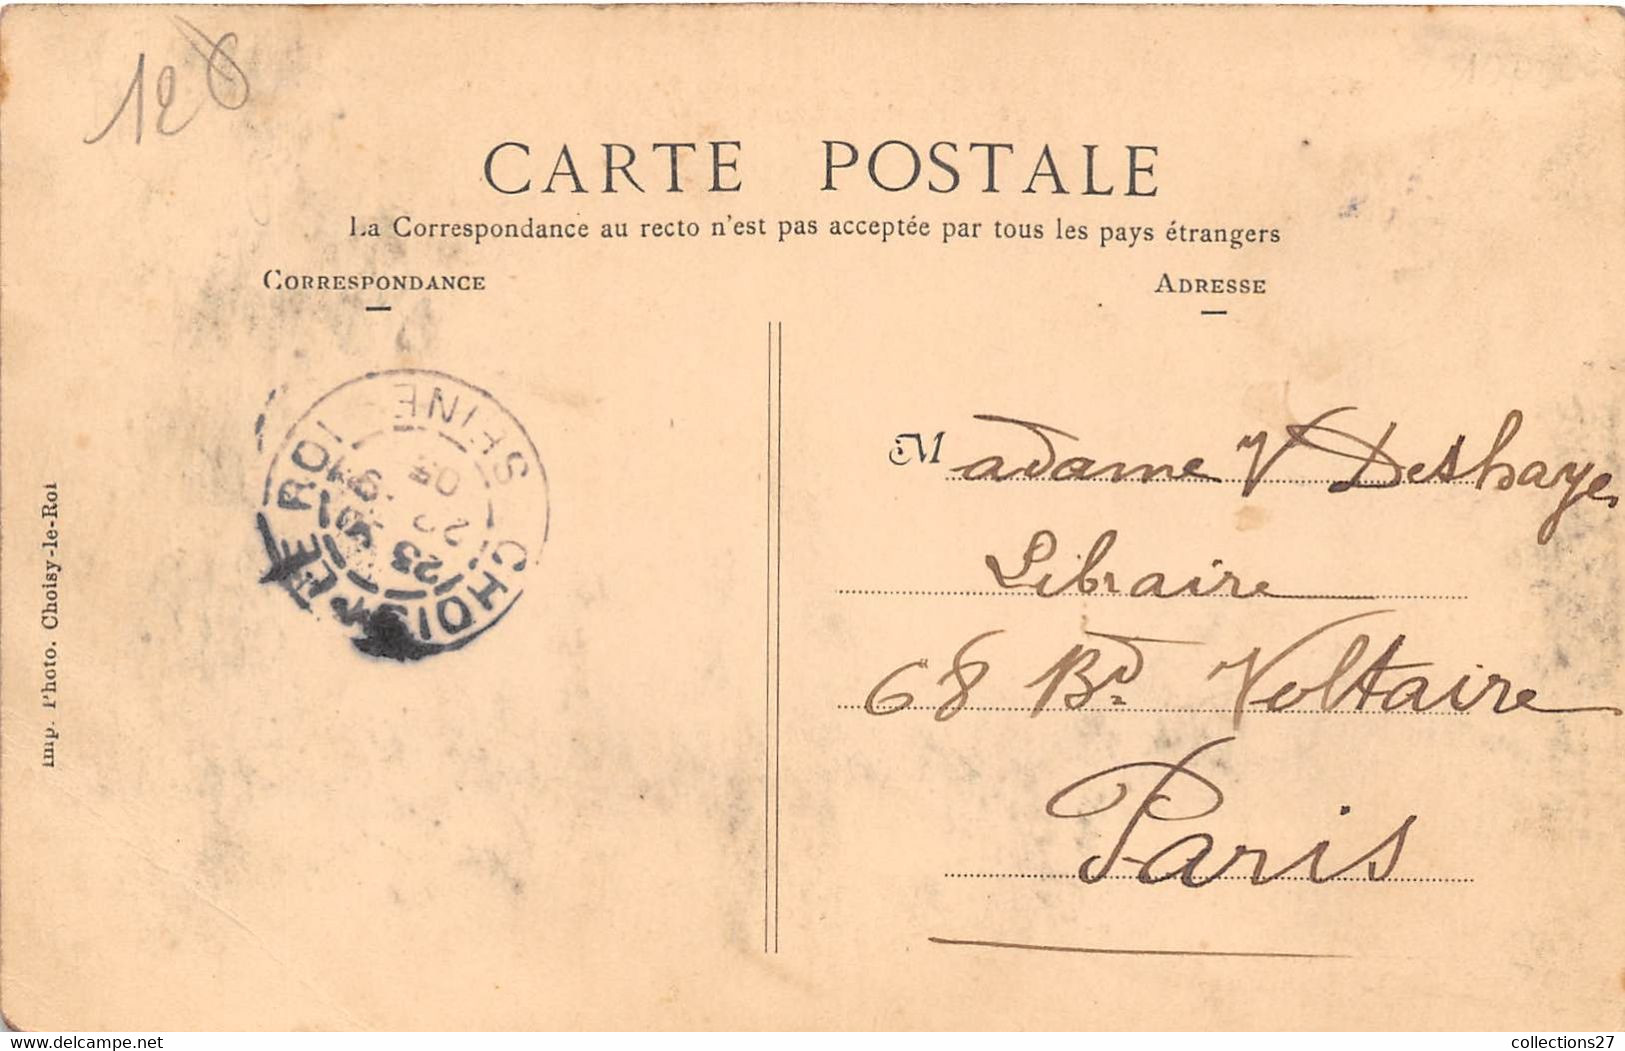 128
CARTE POSTALE
La Correspondance au recto n'est pas acceptée par tous les pays étrangers
CORRESPONDANCE
ADRESSE
CHOISY LE ROI
SEINE
Madame V Deshayes
Libraire
68 Bd Voltaire
Paris
Imp. Photo. Choisy-le-Roi
collections27